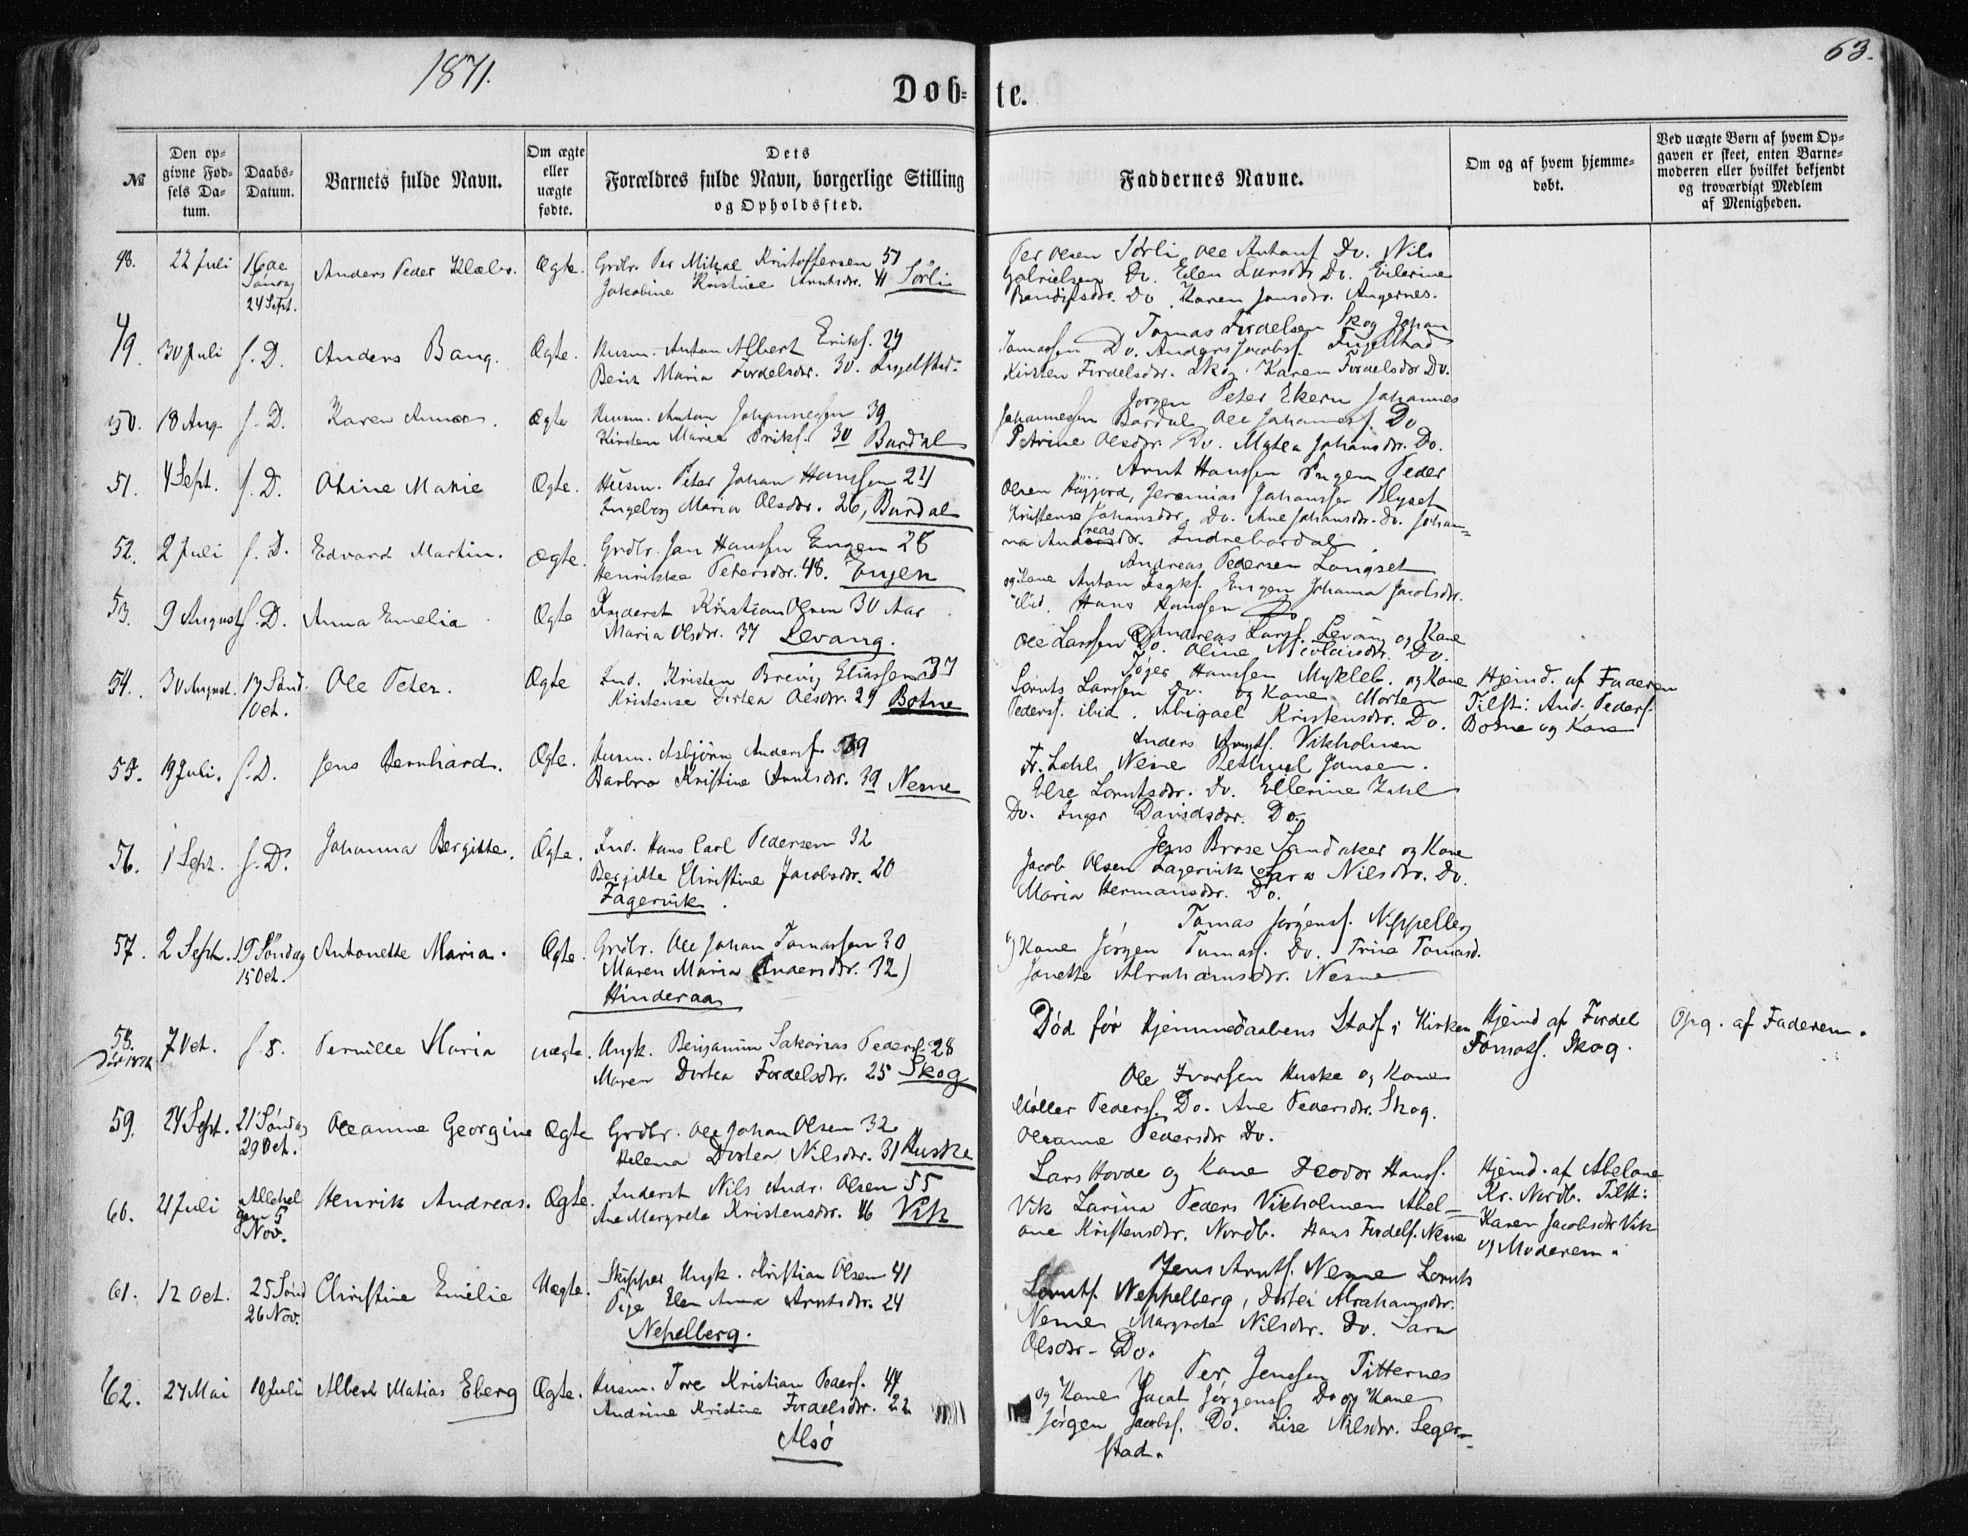 1871.
63.
Døbte.
№
Den opgivne Fødsels Datum.
Daabs-Datum.
Barnets fulde Navn.
Om ægte eller uægte fødte.
Dets Forældres fulde Navn, borgerlige Stilling og Opholdssted.
Faddernes Navne.
Om og af hvem hjemmedøbt.
Ved uægte Børn af hvem Opgaven er skeet, enten Barnemoderen eller hvilket bekjendt og troværdigt Medlem af Menigheden.
48. 22 Juli 16de Søndag 24 Sept. Anders Peder Klæbo. Ægte.
Grdbr. Per Mikal Kristoffersen 51
Jakobine Kristine Arntsdtr. 41 Sørli
Per Olsen Sørli Ole Antonf Do. Nils
Gabrielsen Do. Elen Larsdtr Do. Eilerine
Bendiksdtr. Do. Karen Jansdtr. Angernes.
49. 30 Juli s. D. Anders Bang. Ægte.
Husm. Anton Albert Eriks. 29
Berit Maria Fordelsdtr. 30. Engelstad.
Tomas Fordelsen Skog Johan
Tomassen Do. Anders Jacobs. Engelstad
Kirsten Fordelsdtr. Skog. Karen Fordelsdtr Do.
50. 18 Aug s. D. Karen Anna. Ægte
Husm. Anton Johannessen 39
Kirsten Maria Eriks. 30 Bardal
Jørgen Peter Ekern Johannes
Johannessen Bardal Ole Johannes. Do
Petrine Olsdtr Do. Matea Johansdtr. Do.
51. 4 Sept. s. D. Oline Marie Ægte.
Husm. Peter Johan Hanssen 24
Ingeborg Maria Olsdtr. 26, Bardal
Arnt Hanssen Engen Peder
Olsen Høgjord, Jeremias Johanssen Blyset
Kristense Johansdtr. Do. Ane Johansdtr. Do. Johanna
Andreasdtr. Indrebardal
52. 2 Juli s. D. Edvard Martin. Ægte.
Grdbr. Jan Hanssen Engen 28
Henrikke Petersdtr. 48. Engen
Andreas Pedersen Langset
og Kone Anton Isaks. Engen Johanna Jacobsdtr.
ibid. Hans Hanssen Do
53. 9 August s. D. Anna Emelia Ægte
Inderst Kristian Olsen 30 Aar
Maria Olsdtr. 37 Levang.
Andreas Lars. Levang og Kone
Ole Larssen Do. Oline Nicolaisdtr. Do.
54. 30 August. 17 Sønd. 1 Oct. Ole Peter. Ægte
Ind. Kristen Breivig Eliassen 37
Kristense Dortea Olsdtr. 29 Botne
Jøger Hanssen Mykleb. og Kone
Lornts Larssen Do. og Kone Morten
Peders. ibid. Abigael Kristensdtr. Do.
Hjemd. af Faderen
Tilst: And. Peders.
Botne og Kone
55. 19 Juli. s. D. Jens Bernhard. Ægte.
Husm. Asbjørn Anders. 39
Barbro Kristine Arntsdtr. 39 Nesne
Anders Arnts. Vikholmen
Fr. Zahl Nesne Bethuel Jansen.
Else Lorntsdtr. Do. Ellerine Zahl
Do. Inger Davidsdtr. Do.
56. 1 Sept. s. D. Johanna Bergitte. Ægte.
Ind. Hans Carl Pedersen 32
Bergitte Christine Jacobsdtr. 20
Fagervik.
Jens Brose Sandaker og Kone
Jacob Olsen Fagervik Sara Nilsdtr. Do.
Maria Hermansdtr. Do.
57. 2 Sept. 19 Søndag 15 Oct. Antonette Maria. Ægte.
Grdbr. Ole Johan Tomassen 30
Maren Maria Andersdtr. 32
Hinderaa
Tomas Jørgens. Neppelberg
og Kone Jørgen Tomas. Do. Trine Tomasd.
Janetta Abrahamsdtr. Nesne
58. 7 Oct. s. D. Pernille Maria uægte.
Ungk. Benjamin Sakarias Peders. 28
Maren Dortea Fordelsdtr. 25 Skog
Død før Hjemmedaabens Stadf. i Kirken
Hjemd af Fordel
Tomas. Skog.
Opg. af Faderen.
59. 24 Sept. 21 Søndag 29 Oct. Oleanne Georgine Ægte
Grdbr. Ole Johan Olsen 32
Helena Dortea Nilsdtr. 31 Huske
Ole Ivarsen Huske og Kone
Møller Peders. Do. Ane Pedersdtr. Skog.
Oleanna Pedersdtr Do.
60. 21 Juli Allehelgen 5 Nov. Henrik Andreas. Ægte.
Inderst Nils Andr. Olsen 55
Ane Margrete Kristensdtr. 46 Vik
Lars Hovde og Kone Teodor Hans.
Vik Larina Peders Vikholmen Abelone
Kristensdtr. Nordb. Hans Fordels. Nesne
Hjemd. af Abelone
Kr. Nordb. Tilst:
Karen Jacobsdtr Vik
og Moderen.
61. 12 Oct. 25 Sønd 26 Nov. Christine Emelie Uægte.
Skipper Ungk. Kristian Olsen 41
Pige Elen Anna Arntsdtr. 24
Nepelberg.
Jens Arnts. Nesne Lornts
Lornts. Neppelberg, Dortea Abrahamsdtr.
Nesne Margreta Nilsdtr. Do. Sara
Olsdtr. Do.
62. 27 Mai 19 Juli Albert Matias Eberg Ægte.
Husm. Tore Kristian Peders. 44
Andrine Kristine Fordelsdtr. 22
Alsø
Per Jenssen Titternes
og Kone Jacob Jørgens. Do og Kone
Jørgen Jacobs. Do. Lise Nilsdtr. Segerstad.